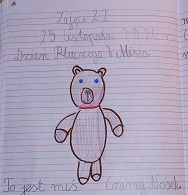 Zajęcia 22
25 listopada 2020
Dzień Pluszowego Misia
To jest miś Czarny Nosek